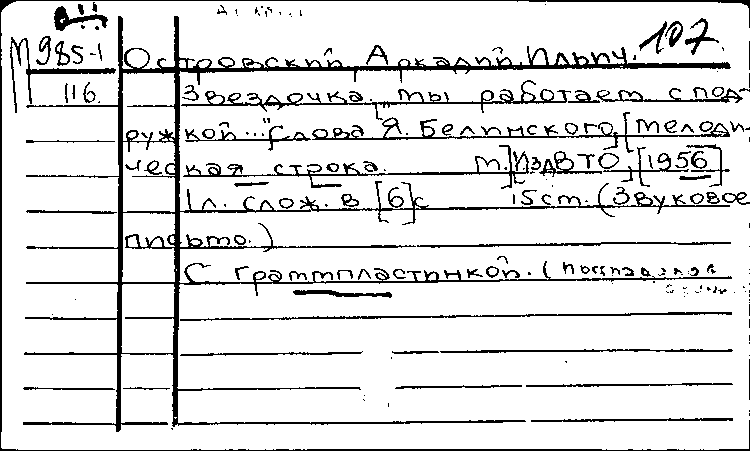 107
М 985-1 Островский, Аркадий Ильич.
116 Звездочка. "Мы работаем с под-
ружкой..." Слова Я. Белинского. [Мелоди-
ческая строка. М.] Изд ВТО, [1956]
1 л. слож. в [6] с 15 см. (Звуковое
письмо.)
С граммпластинкой.